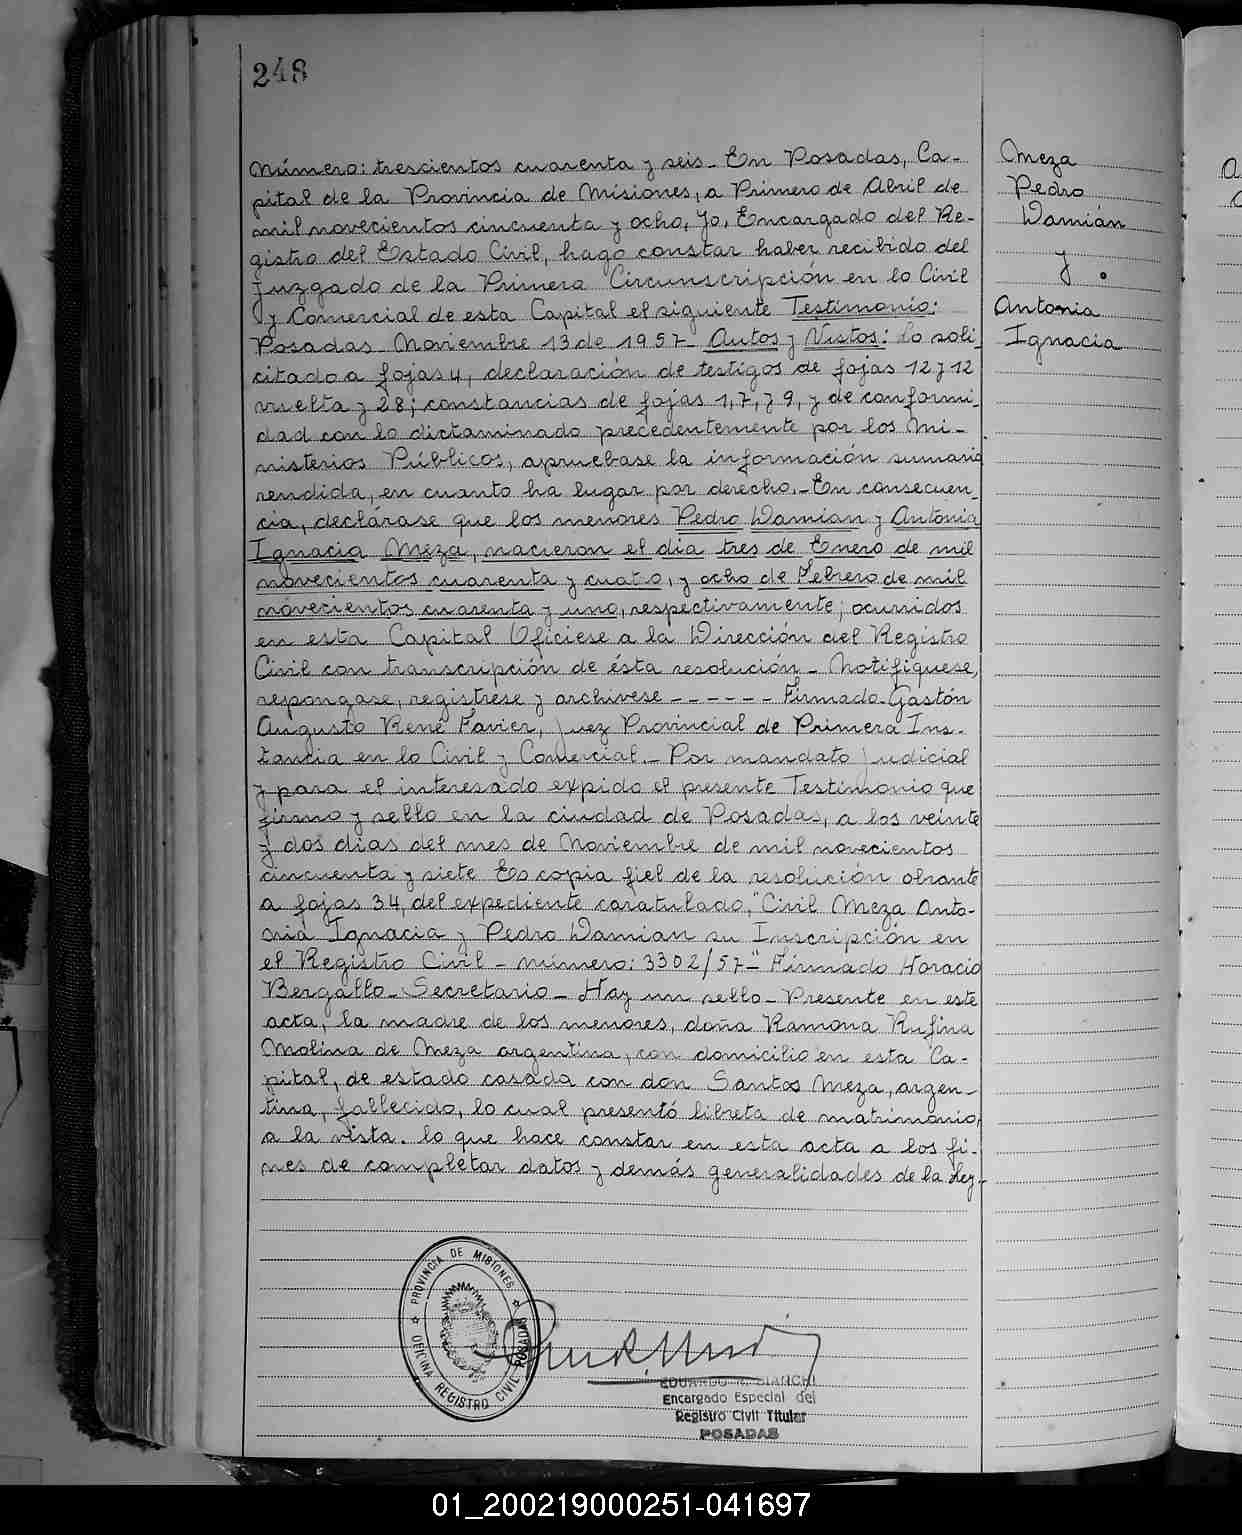 248
Número: trescientos cuarenta y seis - En Posadas, Ca-
pital de la Provincia de Misiones, a Primero de Abril de
mil novecientos cincuenta y ocho, Yo, Encargado del Re-
gistro del Estado Civil, hago constar haber recibido del
Juzgado de la Primera Circunscripción en lo Civil
y Comercial de esta Capital el siguiente Testimonio:
Posadas Noviembre 13 de 1957 - Autos y Vistos: Lo soli
citado a fojas 4, declaración de testigos de fojas 12 y 12
vuelta y 28; constancias de fojas 1, 7, y 9, y de conformi-
dad con lo dictaminado precedentemente por los Mi-
nisterios Públicos, apruebase la información sumaria
rendida, en cuanto ha lugar por derecho. - En consecuen-
cia, declárase que los menores Pedro Damian y Antonia
Ignacia Meza, nacieron el dia tres de Enero de mil
novecientos cuarenta y cuatro, y ocho de Febrero de mil
novecientos cuarenta y uno, respectivamente; ocurridos
en esta Capital Ofíciese a la Dirección del Registro
Civil con transcripción de ésta resolución - Notifiquese,
repongase, registrese y archivese - - - - - - Firmado - Gastón
Augusto René Favier, Juez Provincial de Primera Ins-
tancia en lo Civil y Comercial. - Por mandato Judicial
y para el interesado expido el presente Testimonio que
firmo y sello en la ciudad de Posadas, a los veinte
y dos dias del mes de Noviembre de mil novecientos
cincuenta y siete Es copia fiel de la resolución obrante
a fojas 34, del expediente caratulado, "Civil Meza Anto-
nia Ignacia y Pedro Damian su Inscripción en
el Registro Civil - número: 3302/57 -" Firmado Horacio
Bergallo - Secretario - Hay un sello - Presente en este
acta, la madre de los menores, doña Ramona Rufina
Molina de Meza argentina, con domicilio en esta Ca-
pital, de estado casada con don Santos Meza, argen-
tina, fallecido, lo cual presentó libreta de matrimonio,
a la vista. lo que hace constar en esta acta a los fi-
nes de completar datos y demás generalidades de la Ley -
Meza
Pedro
Damián
y
Antonia
Ignacia
PROVINCIA DE MISIONES
OFICINA REGISTRO CIVIL POSADAS
EDUARDO R. BIANCHI
Encargado Especial del
Registro Civil Titular
POSADAS
01_200219000251-041697